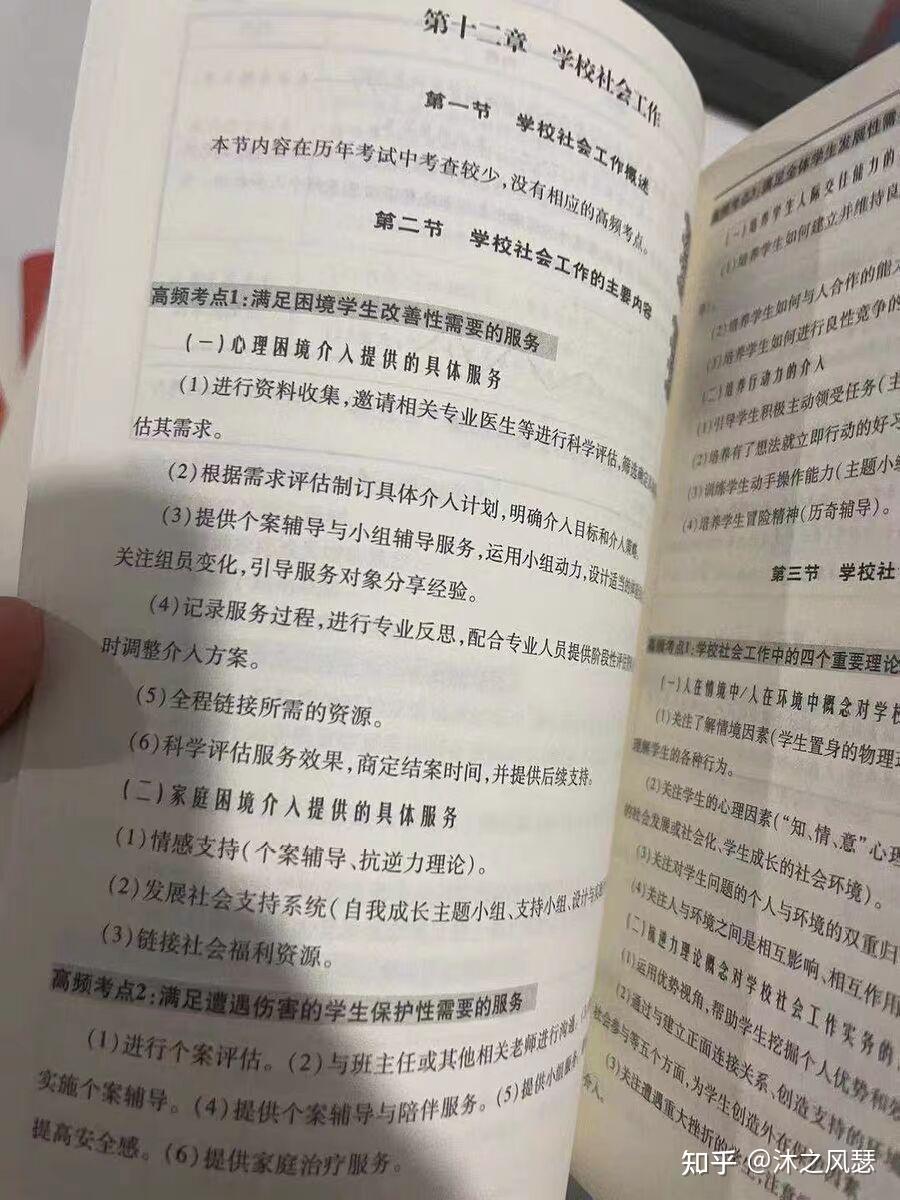 第十二章 学校社会工作
第一节 学校社会工作概述
本节内容在历年考试中考查较少，没有相应的高频考点。
第二节 学校社会工作的主要内容
高频考点1：满足困境学生改善性需要的服务
（一）心理困境介入提供的具体服务
（1）进行资料收集，邀请相关专业医生等进行科学评估，筛选确定
估其需求。
（2）根据需求评估制订具体介入计划，明确介入目标和介入策略
（3）提供个案辅导与小组辅导服务，运用小组动力，设计适当的
关注组员变化，引导服务对象分享经验。
（4）记录服务过程，进行专业反思，配合专业人员提供阶段性评估
时调整介入方案。
（5）全程链接所需的资源。
（6）科学评估服务效果，商定结案时间，并提供后续支持。
（二）家庭困境介入提供的具体服务
（1）情感支持（个案辅导、抗逆力理论）。
（2）发展社会支持系统（自我成长主题小组、支持小组、设计与实施
（3）链接社会福利资源。
高频考点2：满足遭遇伤害的学生保护性需要的服务
（1）进行个案评估。（2）与班主任或其他相关老师进行沟通。
实施个案辅导。（4）提供个案辅导与陪伴服务。（5）提供小组服务
提高安全感。（6）提供家庭治疗服务。
高频考点3：满足全体学生发展性需
（一）培养学生人际交往能力的
（1）培养学生如何建立并维持良
（2）培养学生如何与人合作的能力
（3）培养学生如何进行良性竞争的
（二）培养行动力的介入
（1）引导学生积极主动领受任务（主
（2）培养有了想法就立即行动的好习
（3）训练学生动手操作能力（主题小组
（4）培养学生冒险精神（历奇辅导）。
第三节 学校社
高频考点1：学校社会工作中的四个重要理论
（一）人在情境中/人在环境中概念对学校
（1）关注了解情境因素（学生置身的物理
理解学生的各种行为。
（2）关注学生的心理因素（“知、情、意”心理
的社会发展或社会化、学生成长的社会环境）。
（3）关注对学生问题的个人与环境的双重归
（4）关注人与环境之间是相互影响、相互作用
（二）抗逆力理论概念对学校社会工作实务的
（1）运用优势视角，帮助学生挖掘个人优势和
（2）通过与建立正面连接关系、创造支持的环境
社会参与等五个方面，为学生创造外在保护因素
（3）关注遭遇重大挫折的学生，注意
介入。
知乎 @沐之风瑟